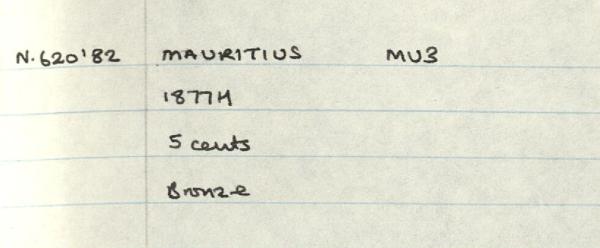 N.620'82 MAURITIUS MU3
1877H
5 cents
Bronze